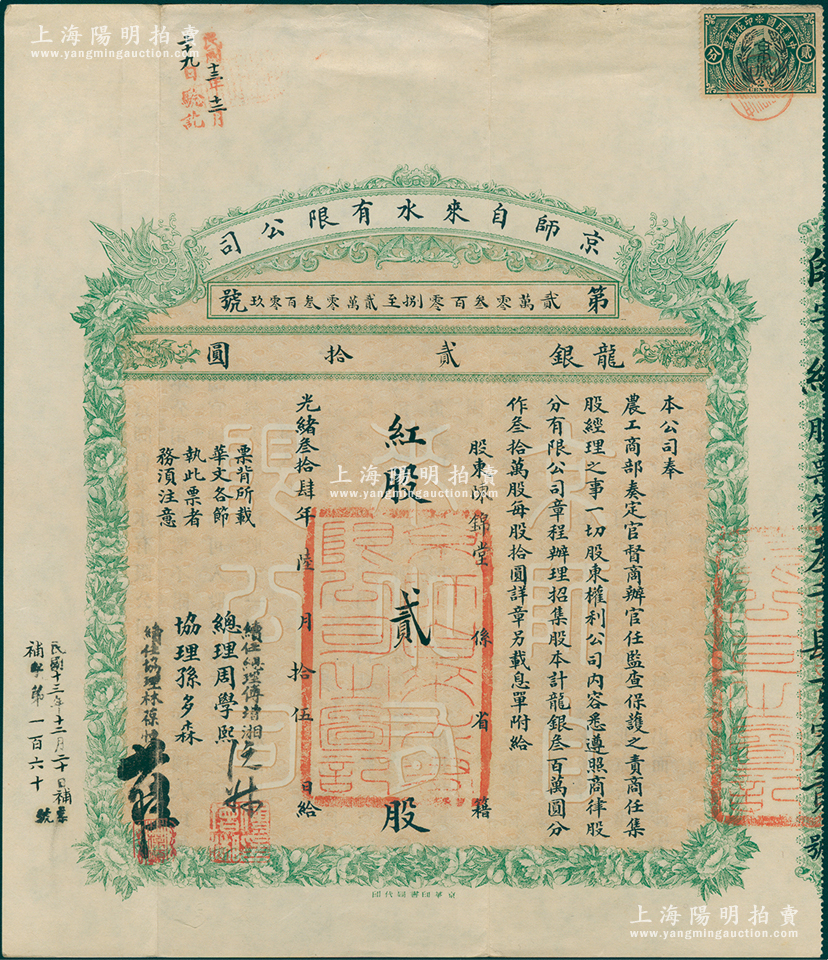 上海陽明拍賣
www.yangmingauction.com
民國十三年十二月
二十九日驗訖
中華民國印花稅票
貳分
2 CENTS
京師自來水有限公司
第貳萬零叁百零捌至貳萬零叁百零玖號
龍銀貳拾圓
本公司奉
農工商部奏定官督商辦官任監查保護之責商任集
股經理之事一切股東權利公司內容悉遵照商律股
分有限公司章程辦理招集股本計龍銀叁百萬圓分
作叁拾萬股每股拾圓詳章另載息單附給
股東 錦堂係 省 籍
紅股貳股
光緒叁拾肆年陸月拾伍日給
票背所載
華文各節
執此票者
務須注意
續任總理傅增湘
總理周學熙
協理孫多森
續任協理林葆恒
民國十三年十二月二十日補票
補字第一百六十號
京華印書局代印
上海陽明拍賣
www.yangmingauction.com
上海陽明拍賣
www.yangmingauction.com